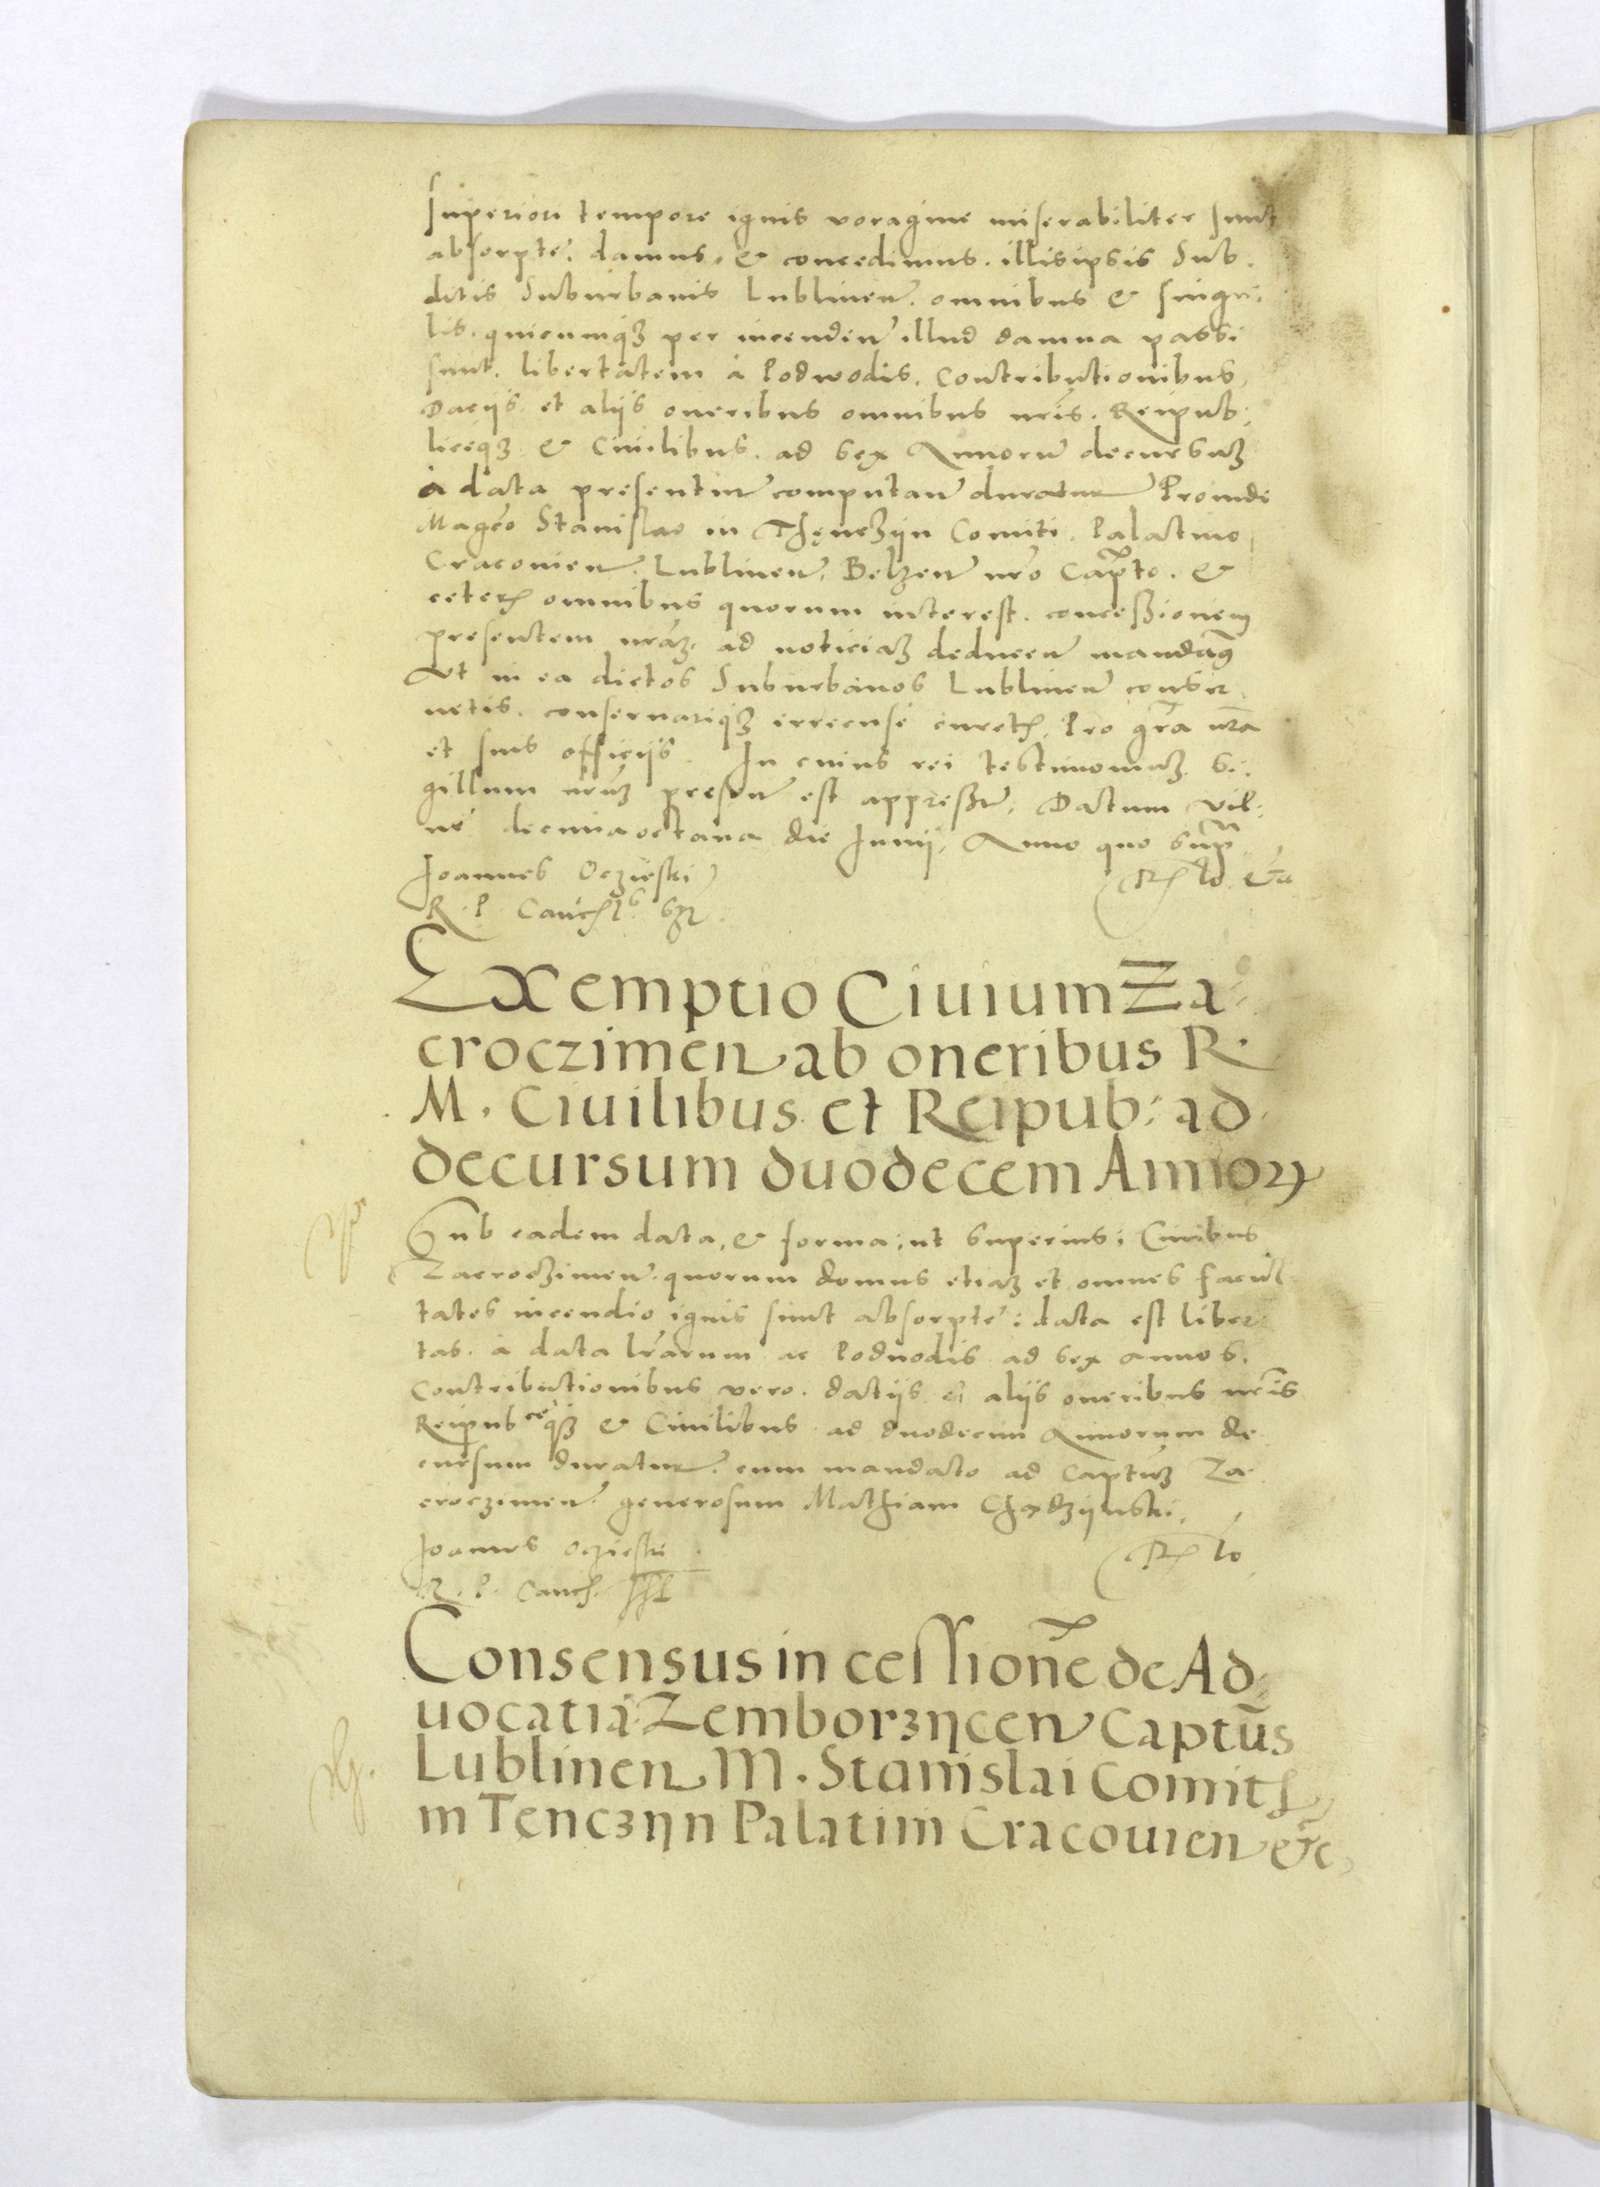 superiori tempore ignis voragine miserabiliter sunt
absorpte, damus, & concedimus. illis ipsis Sub-
ditis Suburbanis Lublinen̄. omnibus & singu-
lis. quicumqȝ per incendiū illud damna passi
sunt. libertatem à Podwodis. Contributionibus,
Daciis et aliis oneribus omnibus nr̄is. Reipub:
liceqȝ & Ciuilibus. ad sex Annorū decursuȝ
à data presentiū computan̄ duratur̄ Proinde
Magco Stanislao in Thęnczijn Comiti. Palatino
Cracouien̄. Lublinen̄. Belzen̄ nr̄o Capto. &
ceteris omnibus quorum interest. concessionem
presentem nr̄aȝ. ad noticiaȝ deducen̄ mandamꝰ
Vt in ea dictos Suburbanos Lublinen̄ conser
uetis. conseruariqȝ curetis. Pro gr̄a nr̄a
et suis officijs. In cuius rei testimoniuȝ. Si:
gillum nr̄uȝ presen̄ est appressū. Datum Vil:
ne decimaoctaua die Junij. Anno quo supra
Joannes Oczieski
R. P. Canc̄ sst
Exemptio Ciuium Za:
croczimen̄ ab oneribus R.
M. Ciuilibus et Reipub: ad
decursum duodecem Annoꝝ
Sub eadem data, & forma, ut superius: Ciuibus
Zacroczimen̄. quorum domus etiaȝ et omnes facul
tates incendio ignis sunt absorpte: data est liber
tas. à data lr̄arum ac Poduodis ad sex annos.
Contributionibus vero. datijs et alijs oneribus nr̄is
Reipubceqȝ & Ciuilibus ad duodecim Annorum de
cursum duratur̄. cum mandato ad Captuȝ Za
croczimen̄. generosum Mathiam
Joannes Oczieski
R. P. Canc̄. sst
Consensus in cessionē de Ad
uocatia Zemborzycen̄ Captūs
Lublinen̄ M. Stanislai Comitis
in Tenczyn Palatini Cracouien̄ &c